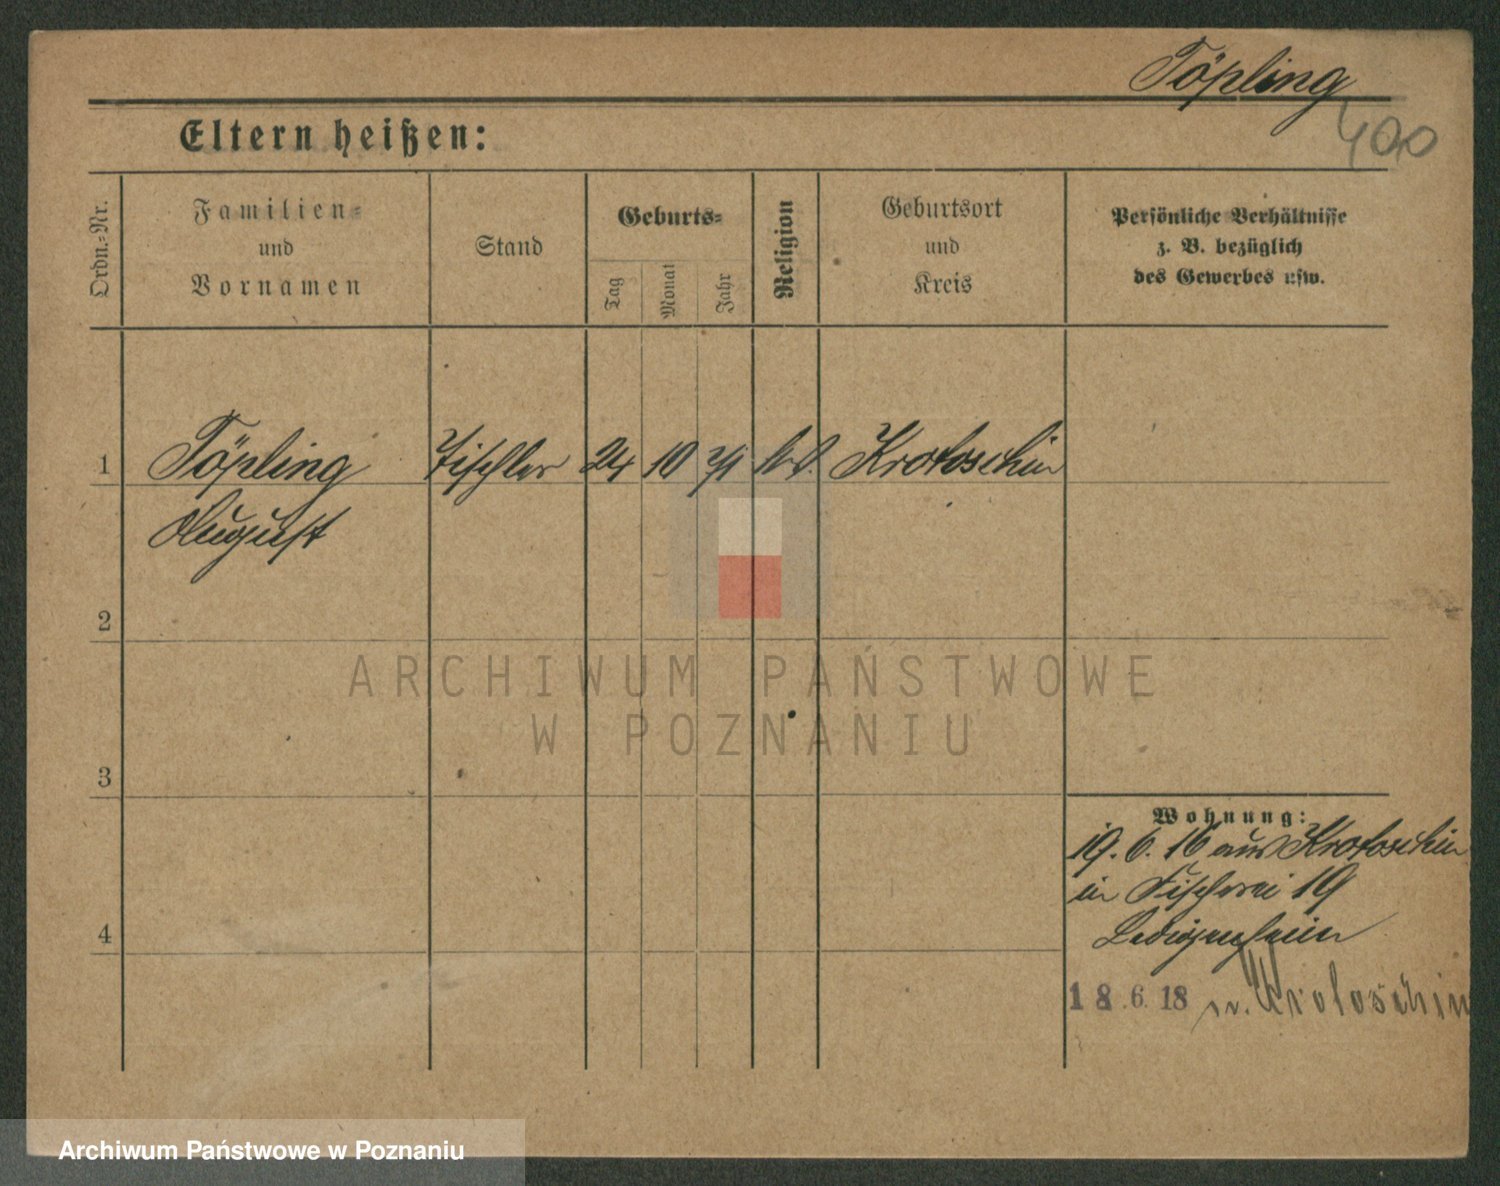 Töpling
400
Eltern heißen:
Ordn.=Nr.
Familien=
und
Vornamen
Stand
Geburts=
Tag
Monat
Jahr
Religion
Geburtsort
und
Kreis
Persönliche Verhältnisse
z. B. bezüglich
des Gewerbes usw.
1 Töpling Tischler 24 10 71 Krotoschin
August
2
ARCHIWUM PAŃSTWOWE
W POZNANIU
3
Wohnung:
19. 6. 16 aus Krotoschin
in Fischerei 19
4 Ledigenheim
18.6.18 n. Krotoschin
Archiwum Państwowe w Poznaniu